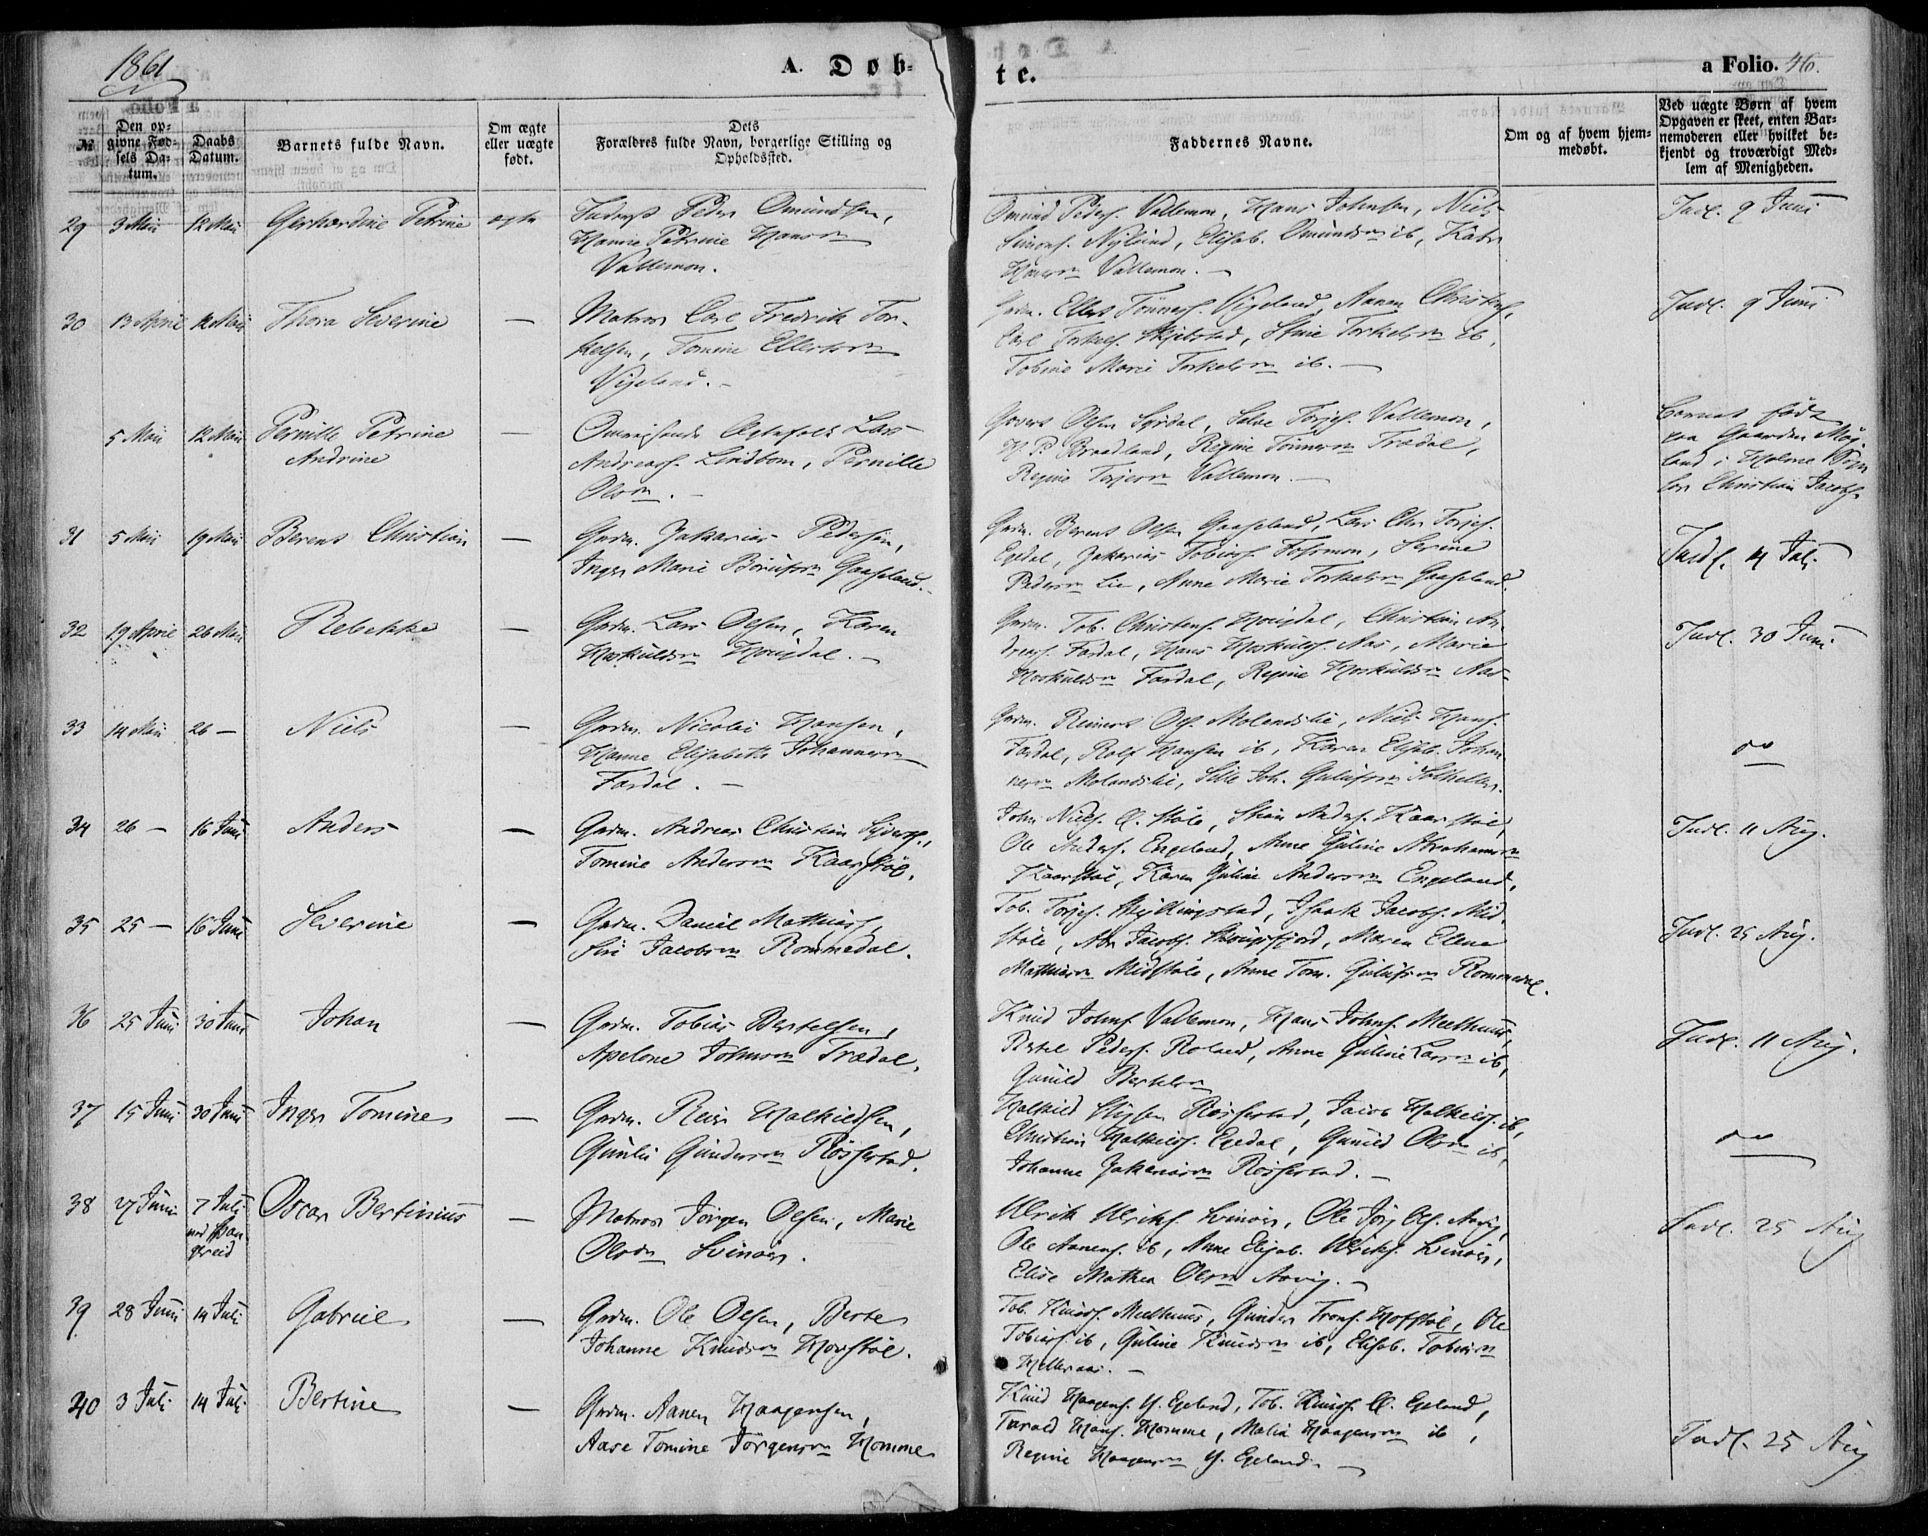 1861
A. Døb-
te.
a Folio. 46.
№
Den op-
givne Fød-
sels Da-
tum.
Daabs
Datum.
Barnets fulde Navn.
Om ægte
eller uægte
født.
Dets
Forældres fulde Navn, borgerlige Stilling og
Opholdssted.
Faddernes Navne.
Om og af hvem hjem-
medøbt.
Ved uægte Børn af hvem
Opgaven er skeet, enten Bar-
nemoderen eller hvilket be-
kjendt og troværdigt Med-
lem af Menigheden.
29 3 Mai 12 Mai Gerhardine Petrine ægte
Peder Omundsen,
Hanne Petrine Hansen
Vallemon.
Omund Peders. Vallemon, Hans Johnsen, Niels
Simons. Nylund, Elisab. Omundsen ib,
Vallemon.
Indl. 9 Juni
30 13 April 12 Mai Thora Severine —
Matros Carl Fredrik Tor-
kelsen, Tomine Ellertsen
Vigeland.
Grdm. Ellert Tönnes. Vigeland, Aanen Christens.
Carl Torkels. Skjelstad, Stine Torkelsen ib,
Tobine Marie Torkelsen ib.
Indl. 9 Juni
5 Mai 12 Mai Pernille Petrine
Andrine —
Omreisende Ægtefolk Lars
Andreas. Lindbom, Pernille
Olsen.
Govert Olsen Sordal, Salve Torjes. Vallemon,
H. P. Braadland, Regine Tönnesen Trædal,
Regine Torjesen Vallemon.
Barnet født
paa Gaarden Møg-
land i Holme Sogn
Christian Jacobs.
31 5 Mai 19 Mai Berent Christian —
Grdm. Zakarias Pedersen,
Inger Marie Börufsen Gaaseland.
Grdm. Berent Olsen Gaaseland, Lars Chr. Torjes.
Egdal, Zakarias Tobias. Fossmon, Serine
Pedersen Lie, Anne Marie Torkelsen Gaaseland.
Indl. 14 Juli
32 19 April 26 Mai Rebekke —
Grdm. Lars Olsen, Karen
Horkuldsen Hougdal.
Grdm. Tob. Christens. Hougdal, Christian An-
dreas. Fardal, Hans Horkulds. Aas, Marie
Horkuldsen Fardal, Regine Horkuldsen Aas
Indl. 30 Juni
33 14 Mai 26 — Niels —
Grdm. Nicolai Hansen,
Hanne Elisabeth Johannesen
Fardal.
Grdm. Reinert Ols. Molandslie, Niels Hans.
Fardal, Rolf Hansen ib, Karen Elisab. Johan-
nesen Molandslie, Sille Joh. Gulufsen
34 26 — 16 Juni Anders —
Grdm. Andreas Christian
Tomine Andersen Kaarstøl.
John Niels. støle, Stian Anders. Kaarstøl,
Ole Anders. Engeland, Anne Guline Abrahamsen
Kaarstøl, Karen Guline Andersen Engeland.
Indl. 11 Aug.
35 25 — 16 Juni Severine —
Grdm. Daniel Mathias.
Siri Jacobsen Rommedal.
Tob. Torjes. Skjellingstad, Isaak Jacobs. Mid-
støle, Abr. Jacobs. Maren Elene
Mathiasen Midstøle, Anne Tom. Gulufsen Rommedal.
Indl. 25 Aug.
36 25 Juni 30 Juni Johan —
Grdm. Tobias Bertelsen,
Apelone Johnsen Trædal.
Knud Johns. Vallemon, Hans Johns. Meelhuus,
Bertel Peders. Roland, Anne Guline Larsen ib,
Gunild Bertelsen
Indl. 11 Aug.
37 15 Juni 30 Juni Inger Tomine —
Grdm. Reier Halkildsen,
Gunlie Gundersen Røsserstad.
Halkild Røsserstad, Jacob Halkilds. ib,
Christian Halkilds. Egdal, Gunild Olsen ib,
Johanne Zakariasen Røsserstad.
38 27 Juni 7 Juli
ved Span-
gereid Oscar Bertinius —
Matros Jörgen Olsen, Marie
Olsen Svinøer.
Ulrik Ulriks. Svinøer, Ole Jörg. Ols. Aavig,
Ole Aanens. ib, Anne Elisab. Ulriks. Svinøer,
Elise Mathea Olsen Aavig.
Indl. 25 Aug
39 28 Juni 14 Juli Gabriel —
Grdm. Ole Olsen, Berte
Johanne Knudsen Hovstøl.
Tob. Knuds. Meelhuus, Gunder Trons. Hofstøl, Ole
Tobias. ib, Guline Knudsen ib, Elisab. Tobiasen
Melleraas.
40 3 Juli 14 Juli Bertine —
Grdm. Aanen Haagensen,
Aase Tomine Jörgensen Homme
Knud Haagens. Y. Egeland, Tob. Knuds. Egeland,
Tarald Hans. Homme, Malia Haagensen ib,
Regine Haagensen Y. Egeland.
Indl. 25 Aug